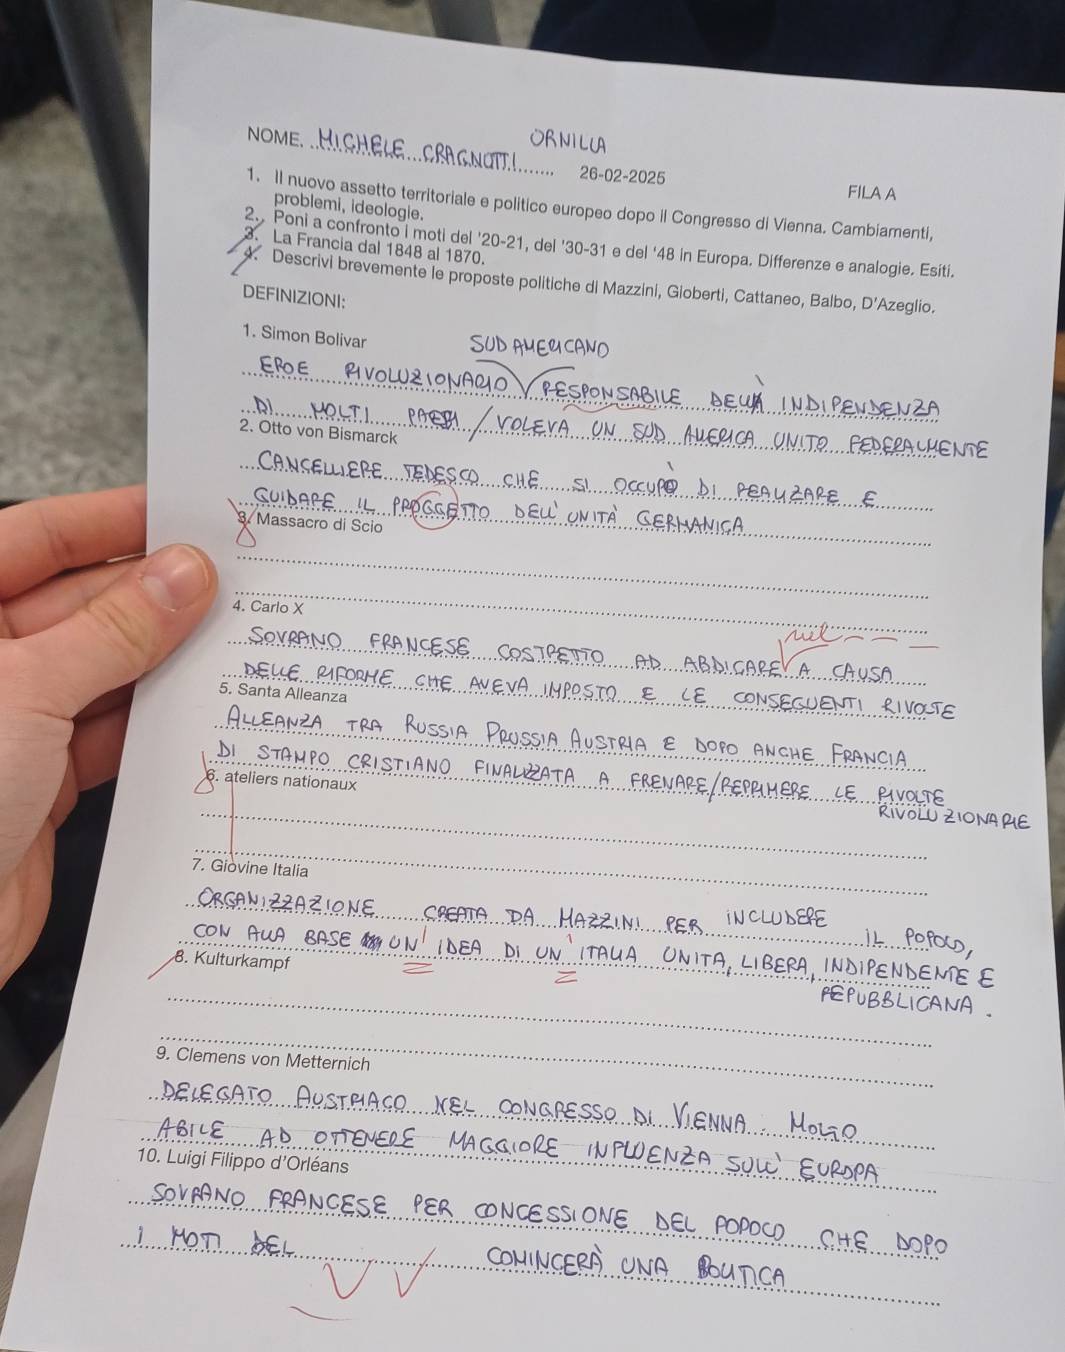 ORNILLA
NOME. MICHELE CRAGNOTTI
26-02-2025
FILA A
1. Il nuovo assetto territoriale e politico europeo dopo il Congresso di Vienna. Cambiamenti,
problemi, ideologie.
2. Poni a confronto i moti del '20-21, del '30-31 e del '48 in Europa. Differenze e analogie. Esiti.
3. La Francia dal 1848 al 1870.
4. Descrivi brevemente le proposte politiche di Mazzini, Gioberti, Cattaneo, Balbo, D'Azeglio.
DEFINIZIONI:
1. Simon Bolivar
SUD AMERICANO
EROE RIVOLUZIONARIO RESPONSABILE DELLA INDIPENDENZA
DI MOLTI PAESI / VOLEVA UN SUD AMERICA UNITO FEDERALMENTE
2. Otto von Bismarck
CANCELLIERE TEDESCO CHE SI OCCUPÒ DI REALIZARE E
GUIDARE IL PROGGETTO DELL' UNITÀ GERMANICA
3. Massacro di Scio
4. Carlo X
nel
SOVRANO FRANCESE COSTRETTO AD ABDICARE A CAUSA
DELLE RIFORME CHE AVEVA IMPOSTO E LE CONSEGUENTI RIVOLTE
5. Santa Alleanza
ALLEANZA TRA RUSSIA PRUSSIA AUSTRIA E DOPO ANCHE FRANCIA
DI STAMPO CRISTIANO FINALIZZATA A FRENARE/REPRIMERE LE RIVOLTE
RIVOLUZIONARIE
6. ateliers nationaux
7. Giovine Italia
ORGANIZZAZIONE CREATA DA MAZZINI PER INCLUDERE IL POPOLO,
CON ALLA BASE UN' IDEA DI UN' ITALIA UNITA, LIBERA, INDIPENDENTE E
REPUBBLICANA.
8. Kulturkampf
9. Clemens von Metternich
DELEGATO AUSTRIACO NEL CONGRESSO DI VIENNA. MOLTO
ABILE AD OTTENERE MAGGIORE INFLUENZA SULL' EUROPA
10. Luigi Filippo d'Orléans
SOVRANO FRANCESE PER CONCESSIONE DEL POPOLO CHE DOPO
I MOTI DEL COMINCERÀ UNA POLITICA